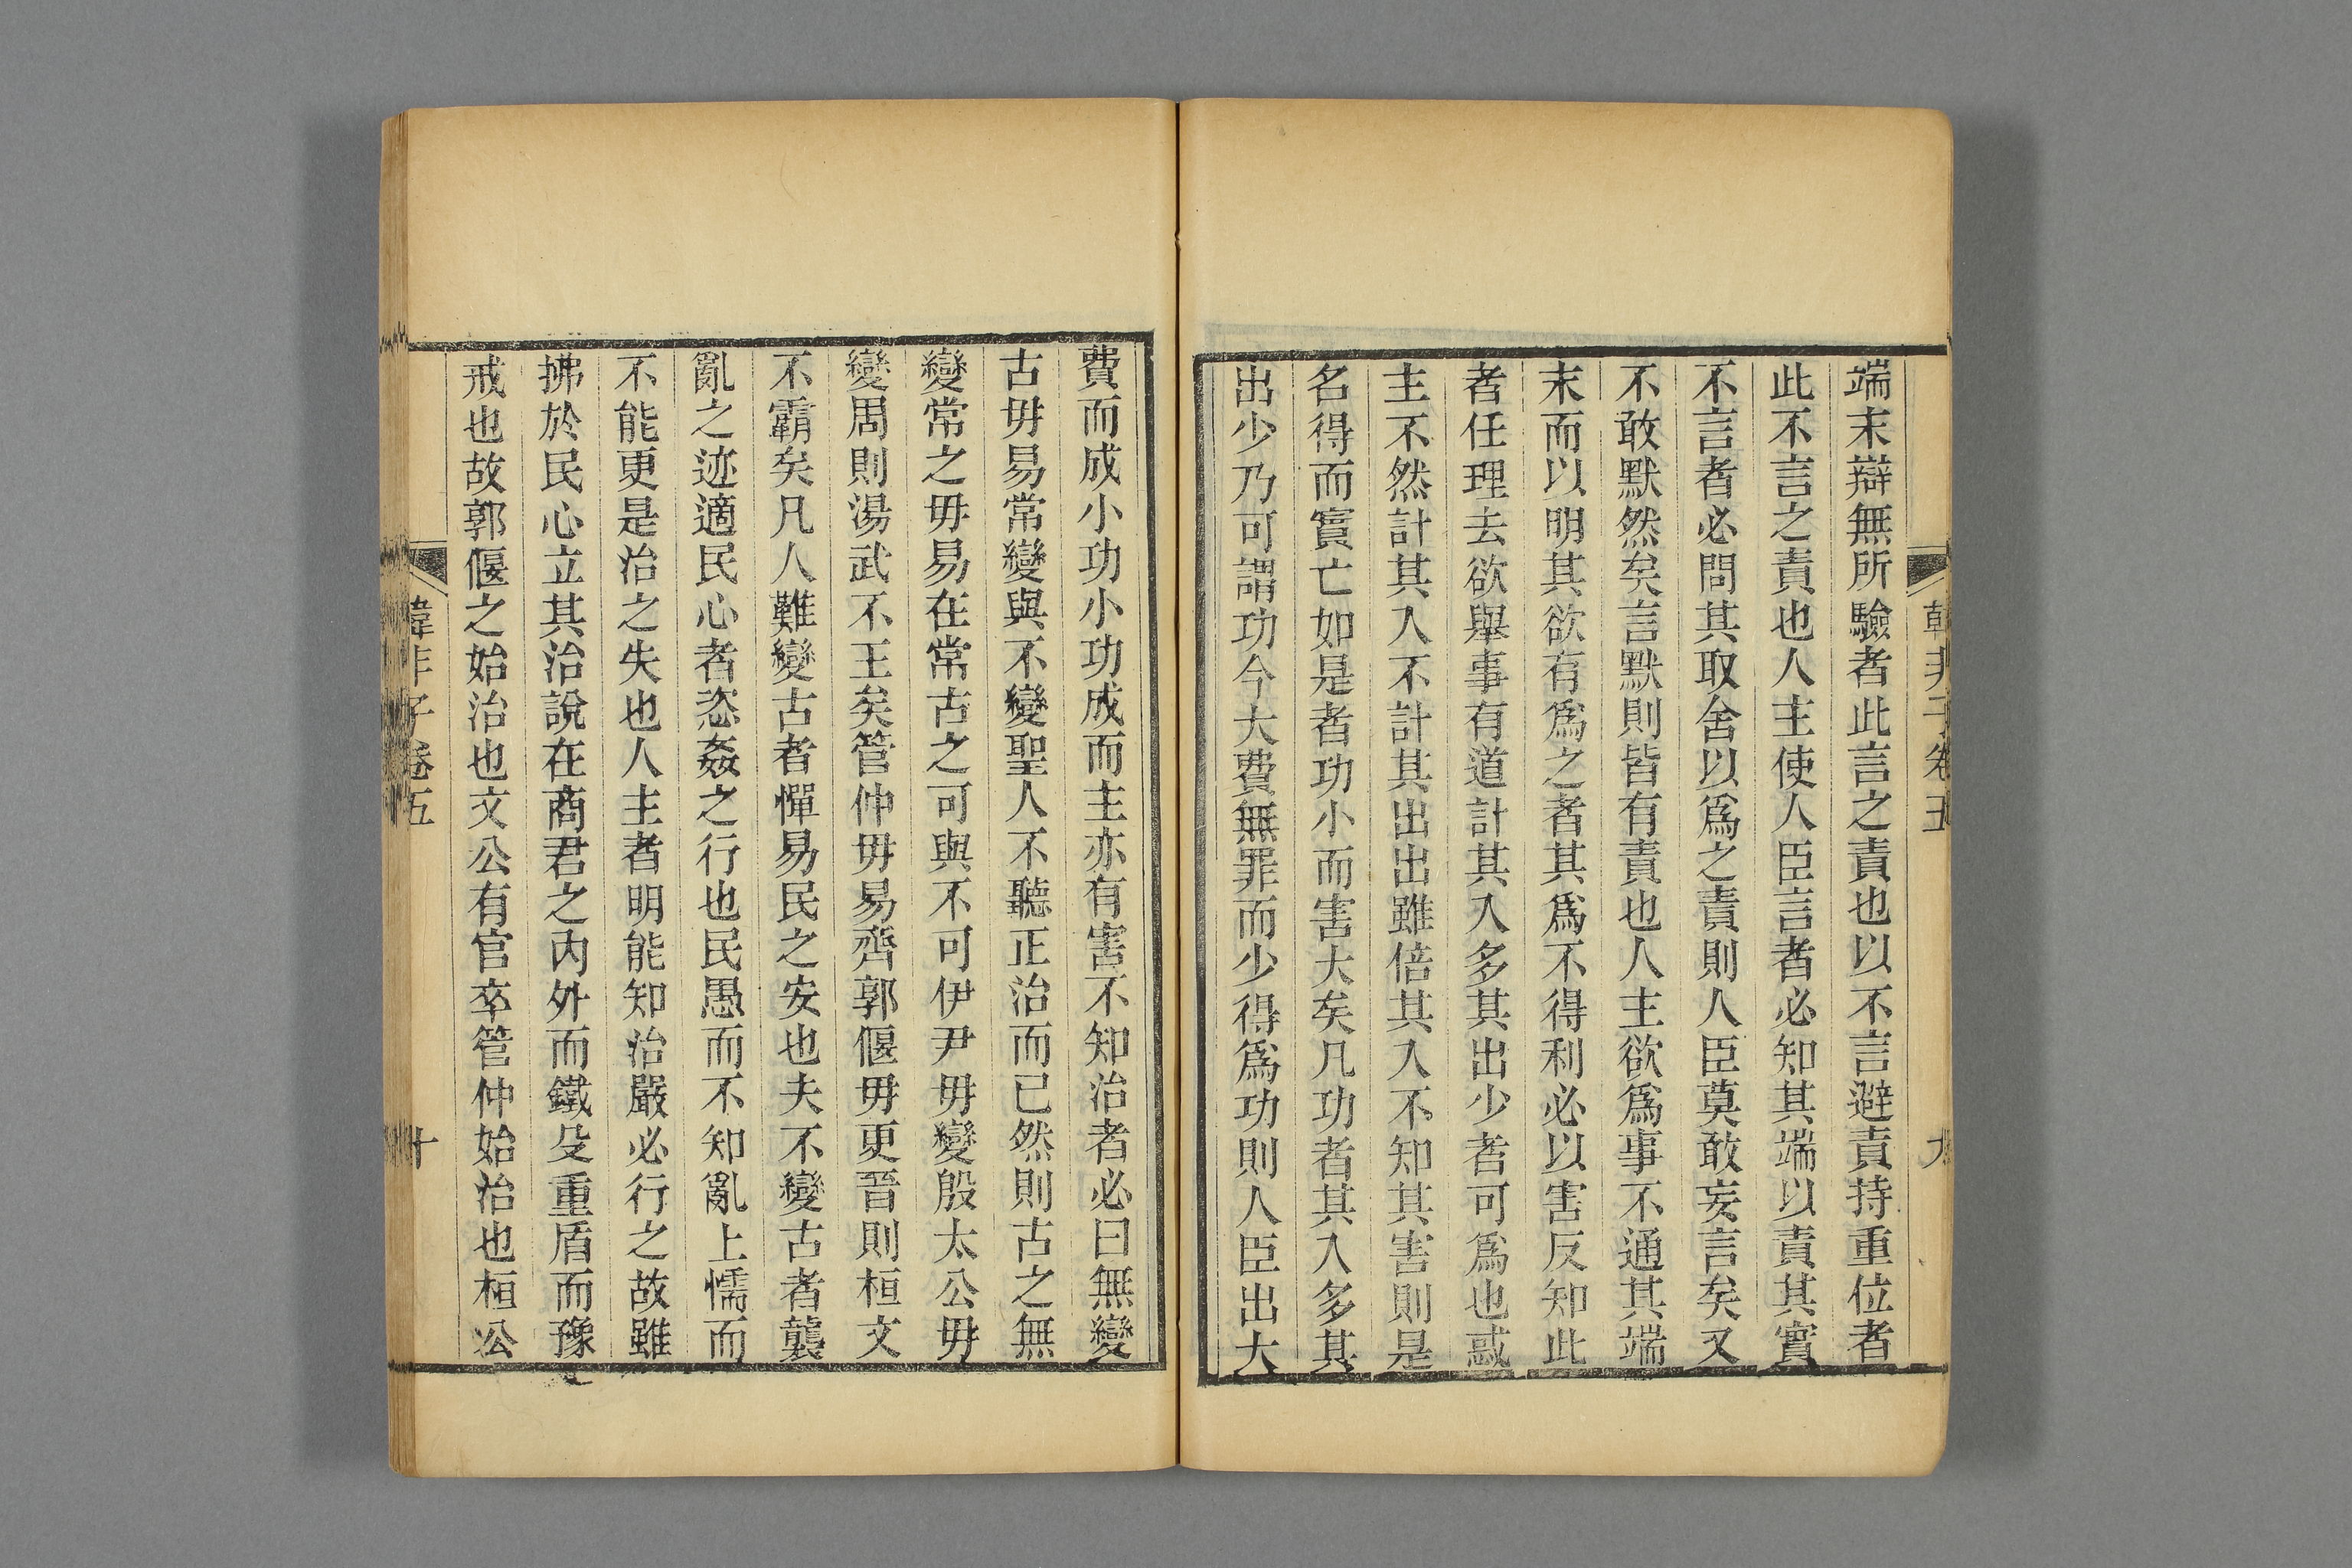 韓非子卷五
九
端末辯無所驗者此言之責也以不言避責持重位者
此不言之責也人主使人臣言者必知其端以責其實
不言者必問其取舍以爲之責則人臣莫敢妄言矣又
不敢默然矣言默則皆有責也人主欲爲事不通其端
末而以明其欲有爲之者其爲不得利必以害反知此
者任理去欲舉事有道計其入多其出少者可爲也惑
主不然計其入不計其出出雖倍其入不知其害則是
名得而實亡如是者功小而害大矣凡功者其入多其
出少乃可謂功今大費無罪而少得爲功則人臣出大
費而成小功小功成而主亦有害不知治者必曰無變
古毋易常變與不變聖人不聽正治而已然則古之無
變常之毋易在常古之可與不可伊尹毋變殷太公毋
變周則湯武不王矣管仲毋易齊郭偃毋更晉則桓文
不霸矣凡人難變古者憚易民之安也夫不變古者襲
亂之迹適民心者恣姦之行也民愚而不知亂上懦而
不能更是治之失也人主者明能知治嚴必行之故雖
拂於民心立其治說在商君之內外而鐵殳重盾而豫
戒也故郭偃之始治也文公有官卒管仲始治也桓公
韓非子卷五
十